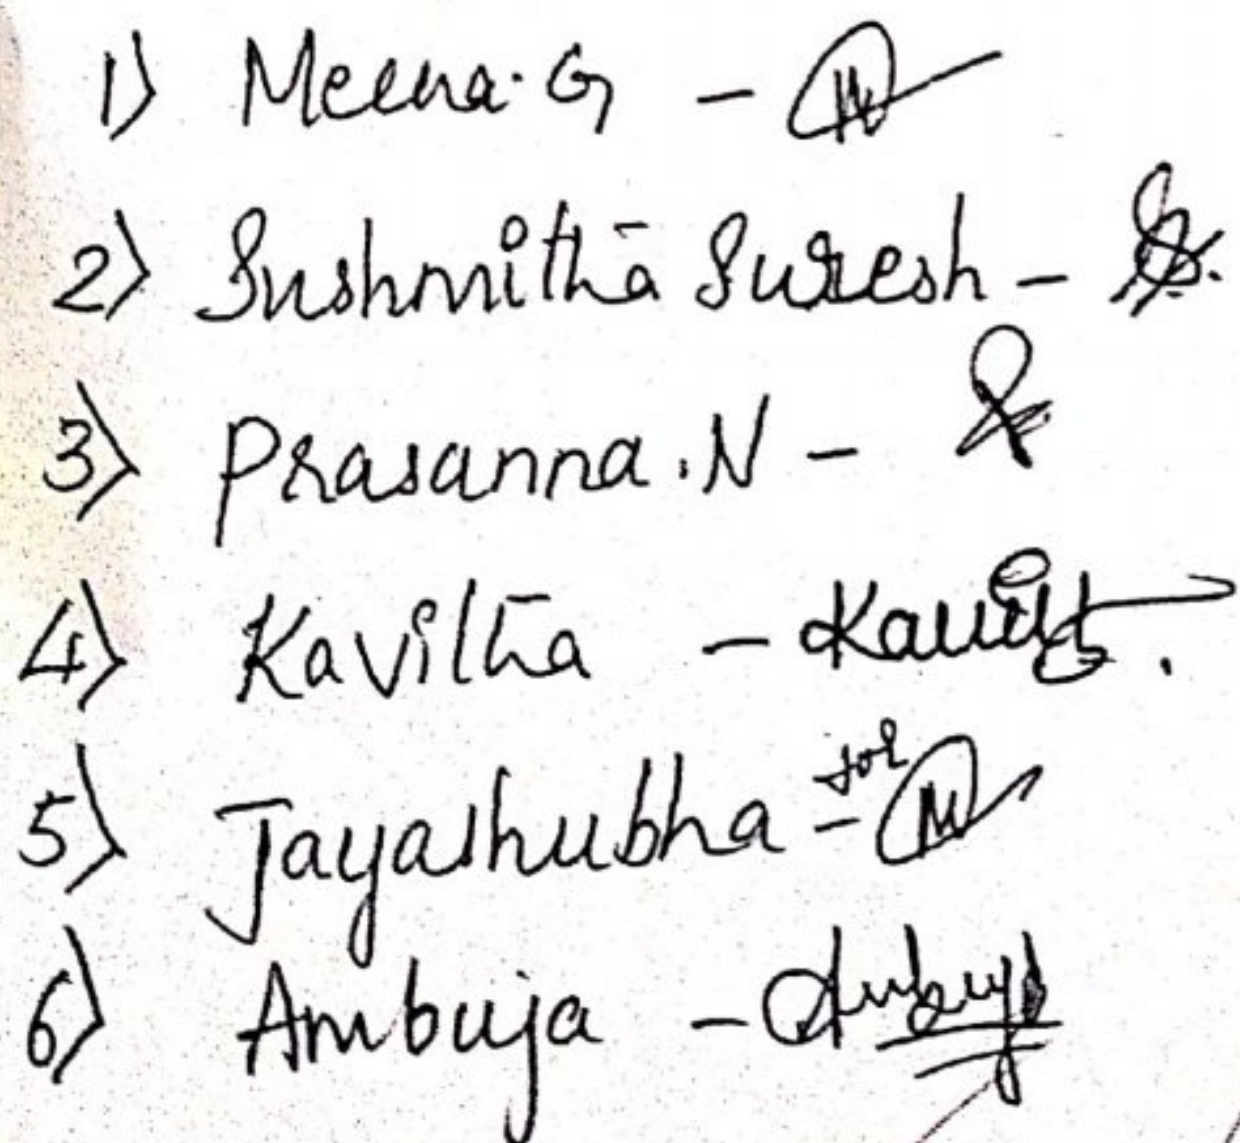 1) Meena.G -
2) Sushmitha Suresh -
3) Prasanna.N -
4) Kavitha - Kavitha.
5) Jayashubha - for
6) Ambuja - Ambuja